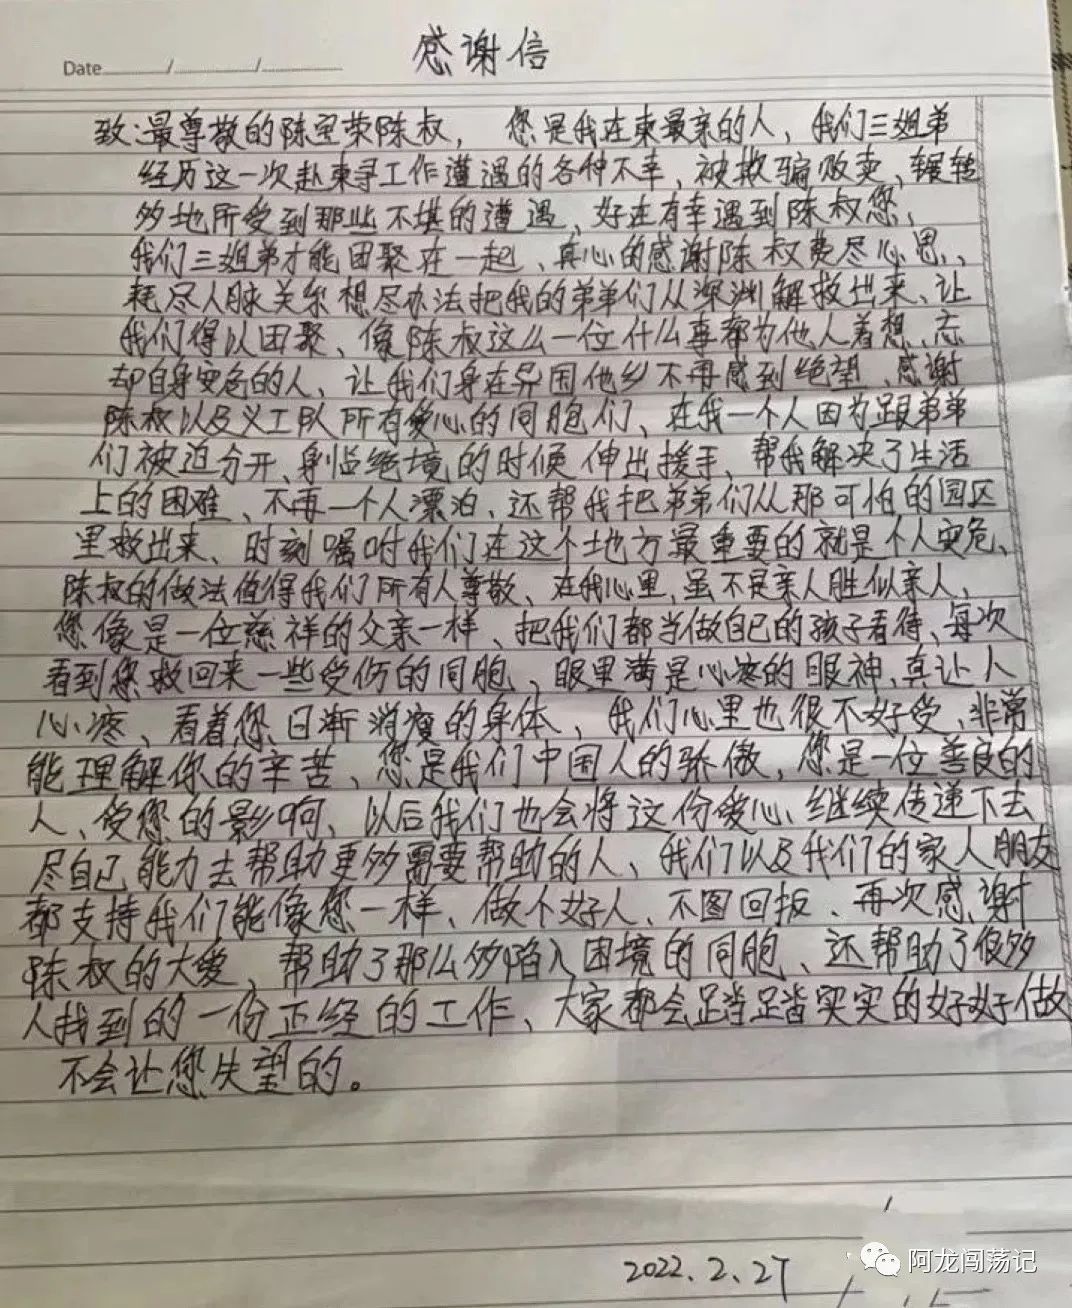 感谢信
Date / /
致:最尊敬的陈宝荣陈叔, 您是我在柬最亲的人,我们三姐弟
经历这一次赴柬寻工作遭遇的各种不幸、被欺骗贩卖、辗转
多地所受到那些不堪的遭遇、好在有幸遇到陈叔您、
我们三姐弟才能团聚在一起、真心的感谢陈叔费尽心思、
耗尽人脉关系想尽办法把我的弟弟们从深渊解救出来、让
我们得以团聚、像陈叔这么一位什么事都为他人着想、忘
却自身安危的人、让我们身在异国他乡不再感到绝望、感谢
陈叔以及义工队所有爱心的同胞们、在我一个人因为跟弟弟
们被迫分开、身临绝境的时候伸出援手、帮我解决了生活
上的困难、不再一个人漂泊、还帮我把弟弟们从那可怕的园区
里救出来、时刻嘱咐我们在这个地方最重要的就是个人安危、
陈叔的做法值得我们所有人尊敬、在我心里、虽不是亲人胜似亲人、
您像是一位慈祥的父亲一样、把我们都当做自己的孩子看待、每次
看到您救回来一些受伤的同胞、眼里满是心疼的眼神、真让人
心疼、看着您日渐消瘦的身体、我们心里也很不好受、非常
能理解你的辛苦、您是我们中国人的骄傲,您是一位善良的
人、受您的影响、以后我们也会将这份爱心、继续传递下去
尽自己能力去帮助更多需要帮助的人、我们以及我们的家人朋友
都支持我们能像您一样、做个好人、不图回报、再次感谢
陈叔的大爱、帮助了那么多陷入困境的同胞、还帮助了很多
人找到的一份正经的工作、大家都会踏踏实实的好好做
不会让您失望的。
2022.2.27
阿龙闯荡记